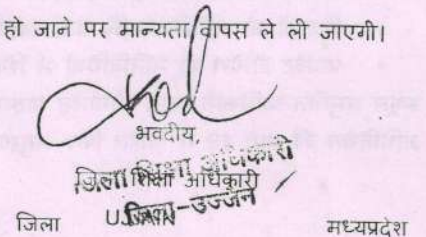 हो जाने पर मान्यता वापस ले ली जाएगी।
भवदीय
जिला शिक्षा अधिकारी
जिला शिक्षा अधिकारी
जिला UJJAIN मध्यप्रदेश
जिला-उज्जैन